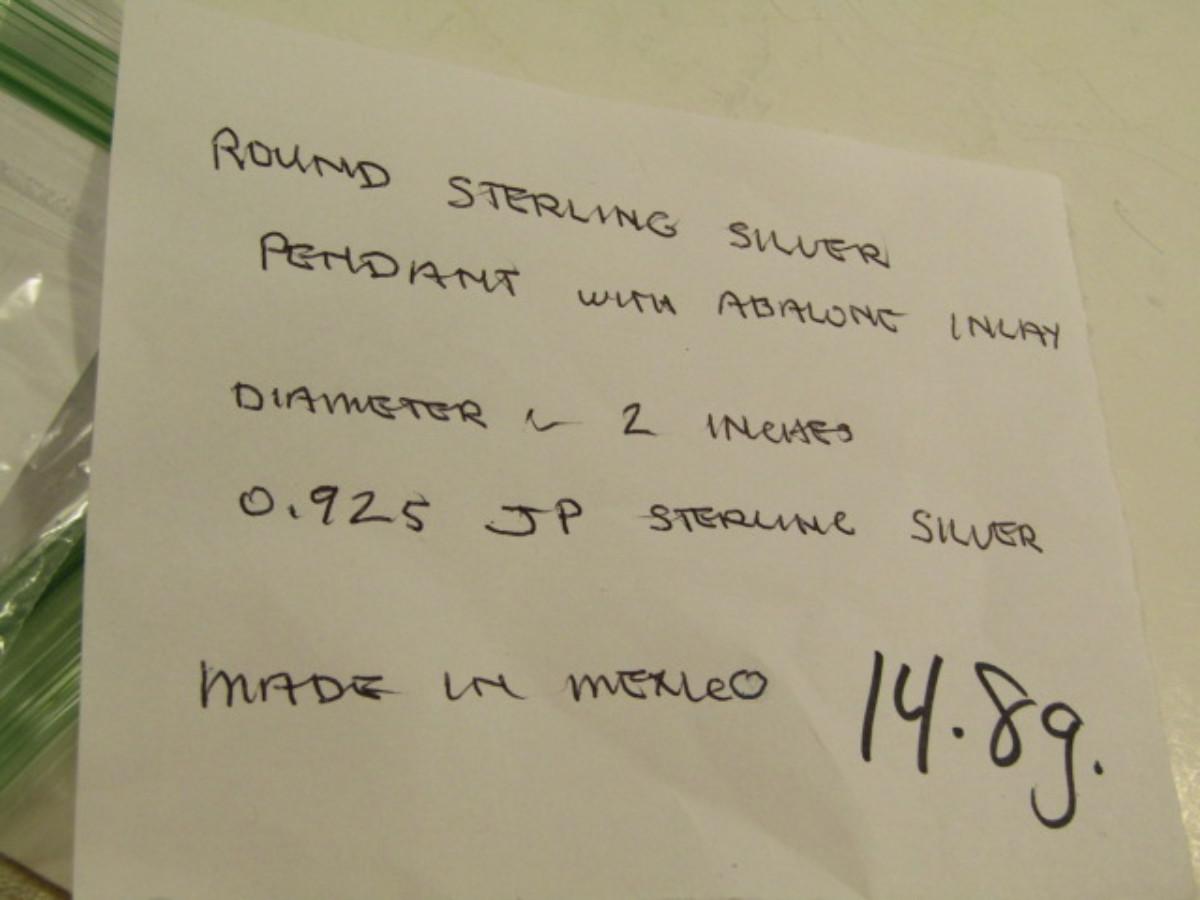 ROUND STERLING SILVER
PENDANT WITH ABALONE INLAY
DIAMETER ~ 2 INCHES
0.925 JP STERLING SILVER
MADE IN MEXICO 14.8g.